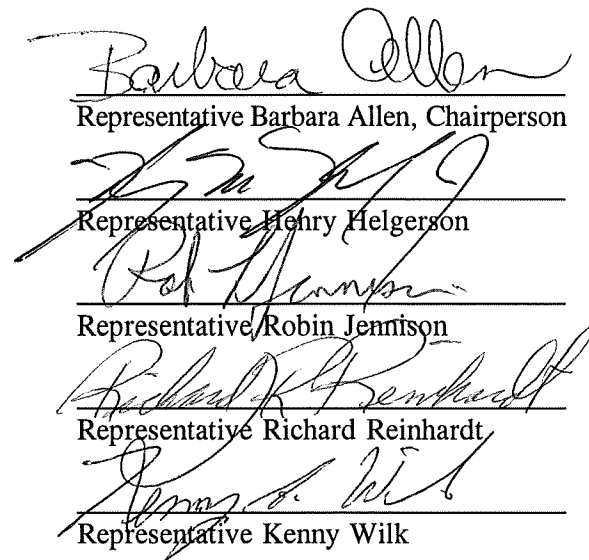 Barbara Allen
Representative Barbara Allen, Chairperson
Representative Henry Helgerson
Rob Jennison
Representative Robin Jennison
Richard R Reinhardt
Representative Richard Reinhardt
Kenny A. Wilk
Representative Kenny Wilk